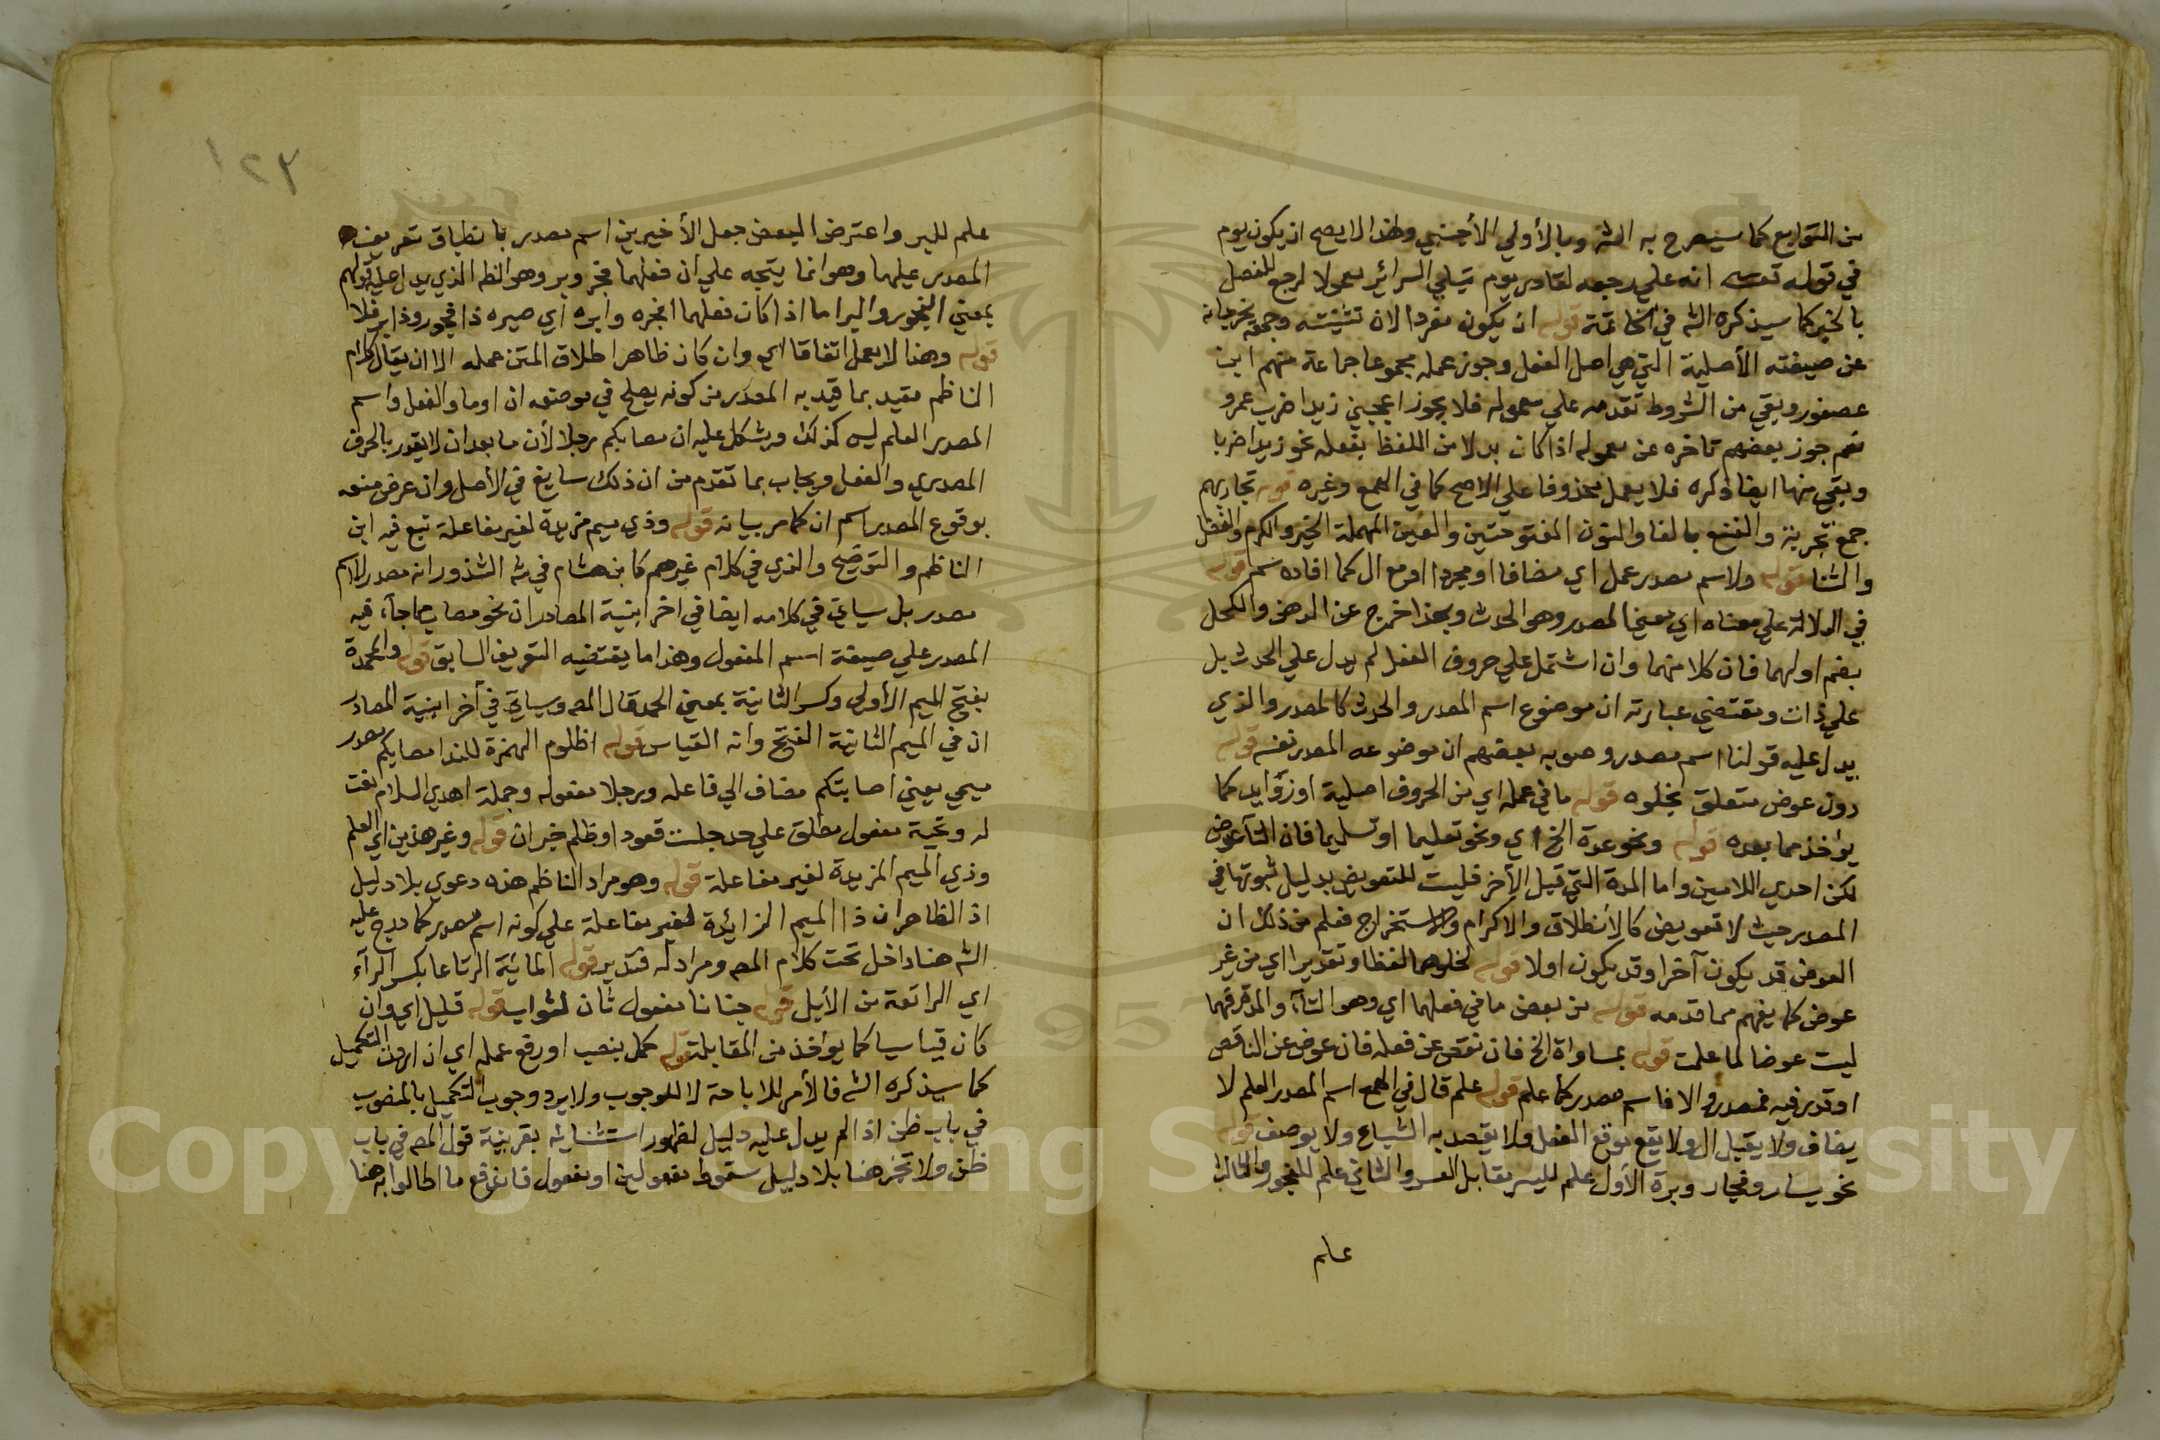 من التوابع كما سيصرح به الشه وبالأولي الأجنبي ولهذا لا يصح ان يكون يوم
في قوله تعالى انه علي رجعه لقادر يوم تبلي السرائر معمولا لرجع للفصل
بالخبر كما سيذكره الشه في الخاتمة قوله ان يكون مفردا لان تثنيته وجمعه يخرجانه
عن صيغته الأصلية التي هي اصل الفعل وجوز عمله مجموعا جماعة منهم ابن
عصفور وبقي من الشروط تقدمه علي معموله فلا يجوز اعجبني زيدا ضرب عمرو
نعم جوز بعضهم تاخره عن معموله اذا كان بدلا من اللفظ بفعله نحو زيدا ضربا
وبقي منها ايضا ذكره فلا يعمل محذوفا علي الاصح كما في الهمع وغيره قوله تجاربهم
جمع تجربة والفنع بالفا والنون المفتوحتين والعين المهملة الخير والكرم والفضل
والثنا قوله ولاسم مصدر عمل اي مضافا او مجردا او مع ال كما افاده سم قوله
في الدلالة علي معناه اي معني المصدر وهو الحدث وبهذا خرج عن الدهن والكحل
بضم اولهما فان كلا منهما وان اشتمل علي حروف الفعل لم يدل علي الحدث بل
علي ذات ومقتضي عبارته ان موضوع اسم المصدر والحدث كالمصدر والذي
يدل عليه قولنا اسم مصدر وصوبه بعضهم ان موضوعه المصدر نفسه قوله
دون عوض متعلق بخلوه قوله ما في عمله اي من الحروف اصلية او زوايد كما
يؤخذ مما بعده قوله ونحو عدة الخ اي ونحو تعليما او تسليما فان التآ عوض
لكن احدي اللامين واما المدة التي قبل الآخر فليست للتعويض بدليل ثبوتها في
المصدر حيث لا تعويض كالأنطلاق والاكرام والاستخراج فعلم من ذلك ان
العوض قد يكون آخرا وقد يكون اولا قوله لخلوهما لفظا وتقديرا اي من غير
عوض كما يفهم مما قدمه قوله من بعض ما في فعلهما اي وهو التآ والمدة فيهما
ليست عوضا لما علمت قوله بمساواة الخ فان نقص عن فعله فان عوض عن الناقص
او قدر فيه فمصدر والا فاسم مصدر كما علم قوله علم قال في الهمع اسم المصدر العلم لا
يضاف ولا يقبل ال ولا يقع موقع الفعل ولا يقصد به الشياع ولا يوصف قوله
نحو يسار وفجار وبرة الأول علم لليسر مقابل العسر والثاني علم للفجور والثالث
علم
علم للبر واعترض البعض جعل الأخيرين اسم مصدر بانطباق تعريف
المصدر عليهما وهو انما يتجه علي ان فعلهما فجر وبر وهو الظ الذي يدل عليه قولهم
بمعني الفجور والبر اما اذا كان فعلهما افجره وابره اي صيره ذا فجور وذا بر فلا
قوله وهذا لا يعمل اتفاقا اي وان كان ظاهر اطلاق المتن عمله الا ان يقال كلام
الناظم مقيد بما قيد به المصدر من كونه يصلح في موضعه ان او ما والفعل واسم
المصدر العلم ليس كذلك ويشكل عليه ان مصابكم رجلا لأن ما بعد ان لا يقدر بالحرف
المصدري والفعل ويجاب بما تقدم من ان ذلك سايغ في الأصل وان عرض منعه
بوقوع المصدر اسم ان كما مر بيانه قوله وذي ميم مزيدة لغير مفاعلة تبع فيه ابن
الناظم والتوضيح والذي في كلام غيرهم كابن هشام في شه الشذور انه مصدر لا اسم
مصدر بل سياتي في كلامه ايضا في اخر ابنية المصادر ان نحو مصاب مما جآء فيه
المصدر علي صيغة اسم المفعول وهذا ما يقتضيه التعريف السابق قوله والمحمدة
بفتح الميم الأولى وكسر الثانية بمعني الحمد قال المص وسياتي في آخر ابنية المصادر
ان في الميم الثانية الفتح وانه القياس قوله اظلوم الهمزة للندا مصابكم مصدر
ميمي بمعني اصابتكم مضاف الي فاعله ورجلا مفعوله وجملة اهدي السلام نعت
له وتحية مفعول مطلق علي حد جلست قعودا وظلم خبر ان قوله وغير هذين اي العلم
وذي الميم المزيدة لغير مفاعلة قوله وهو مراد الناظم هذه دعوي بلا دليل
اذ الظاهر ان ذا الميم الزائدة لغير مفاعلة علي كونه اسم مصدر كما درج عليه
الشه هنا داخل تحت كلام المص ومراد له فتدبر قوله المائية الرتاعا بكسر الرآء
اي الراتعة من الأبل قوله جنانا مفعول ثان لثواب قوله قليل اي وان
كان قياسيا كما يؤخذ من المقابلة قوله كمل بنصب او رفع عمله اي ان اردت التكميل
كما سيذكره الشه فالأمر للاباحة لا للوجوب ولا يرد وجوب التكميل بالمنصوب
في باب ظن اذا لم يدل عليه دليل لظهور استثنائه بقرينة قول المص في باب
ظن ولا تجز هنا بلا دليل سقوط مفعولين او مفعول فاندفع ما اطالوا به هنا